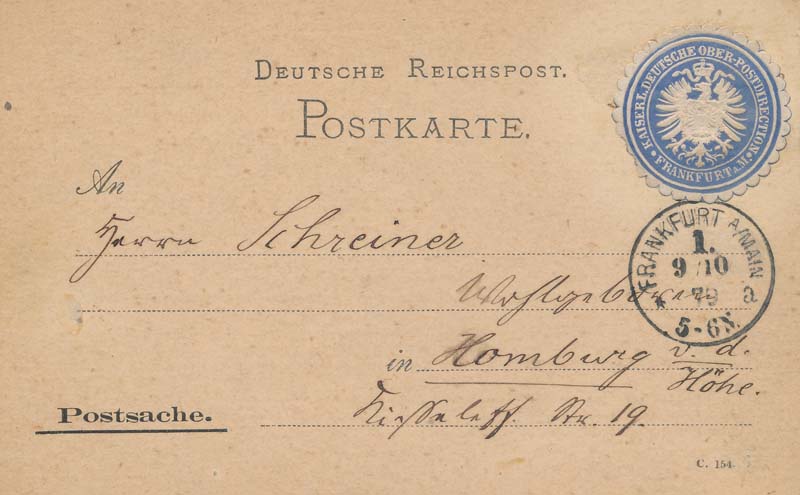 DEUTSCHE REICHSPOST.
POSTKARTE.
KAISERL. DEUTSCHE OBER-POSTDIRECTION
• FRANKFURT a.M. •
An
Herrn Schreiner
Wohlgeboren
in Homburg v. d.
Höhe.
Kisseleff. Str. 19.
FRANKFURT A/MAIN
1.
9/10
79
* a
5-6N.
Postsache.
C. 154.